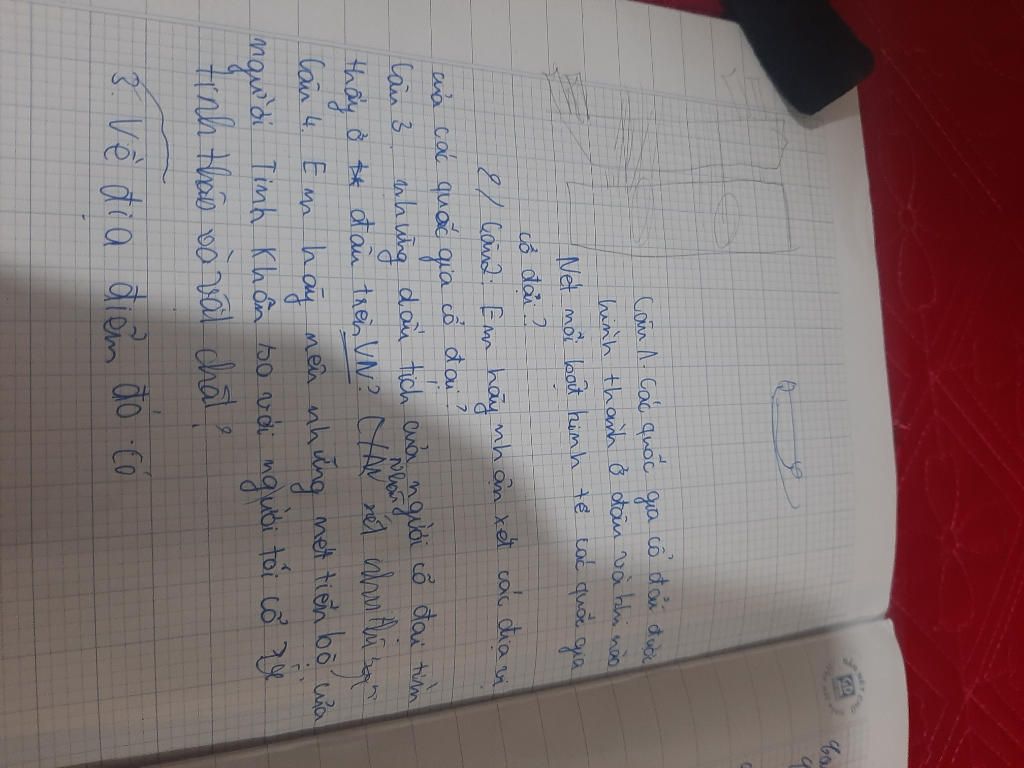 Câu 1. Các quốc gia cổ đại được
hình thành ở đâu và khi nào
Nét nổi bật kinh tế các quốc gia
cổ đại?
2/ Câu 2: Em hãy nhận xét các địa vị
của các quốc gia cổ đại?
Câu 3. những dấu tích của người cổ đại tìm
thấy ở đâu trên VN? (Nhận xét
Câu 4. Em hãy nên những nét tiến bộ của
người Tinh Khôn so với người tối cổ về
tinh thần và vật chất?
3. Về địa điểm đó có